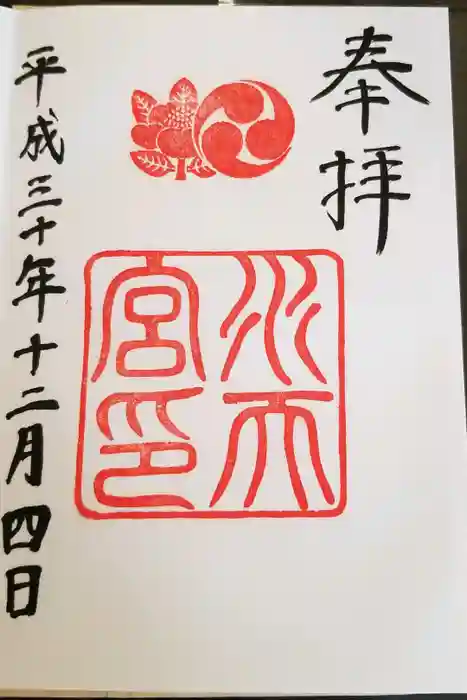 奉拝
水天
宮印
平成三十年十二月四日